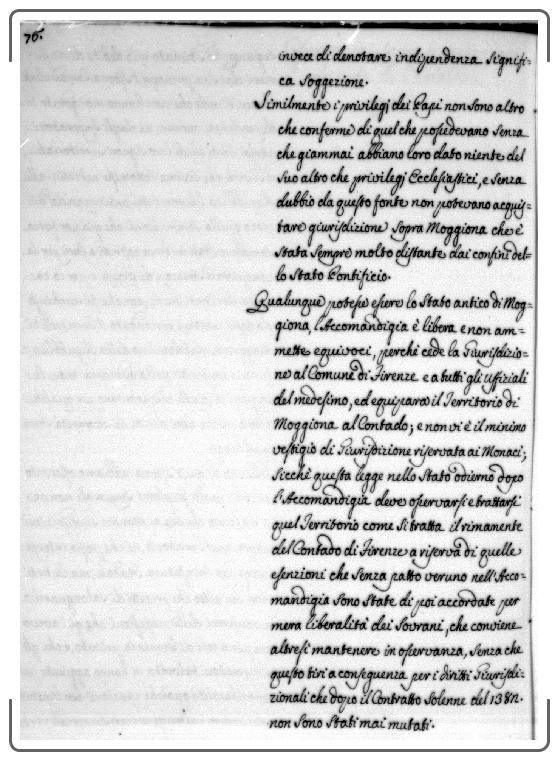 76.
invece di denotare indipendenza signifi-
ca soggezione.
Similmente i privilegi dei Papi non sono altro
che conferme di quel che possedevano senza
che giammai abbiano loro dato niente del
suo altro che privilegi Ecclesiastici, e senza
dubbio da questo fonte non potevano acquis-
tare giurisdizione sopra Moggiona che è
stata sempre molto distante dai confini del-
lo Stato Pontificio.
Qualunque potesse essere lo Stato antico di Mog-
giona, l'Accomandigia è libera e non am-
mette equivoci, perchè cede la Giurisdizio-
ne al Comune di Firenze e a tutti gli Ufiziali
del medesimo, ed equipara il Territorio di
Moggiona al Contado; e non vi è il minimo
vestigio di Giurisdizione riservata ai Monaci;
sicchè questa legge nello Stato odierno dopo
l'Accomandigia deve osservarsi e trattarsi
quel Territorio come si tratta il rimanente
del Contado di Firenze a riserva di quelle
esenzioni che senza patto veruno nell'Acco-
mandigia sono state di poi accordate per
mera liberalità dei Sovrani, che conviene
altresì mantenere in osservanza, senza che
questo tiri a conseguenza per i diritti Giurisdi-
zionali che dopo il Contratto solenne del
non sono stati mai mutati.